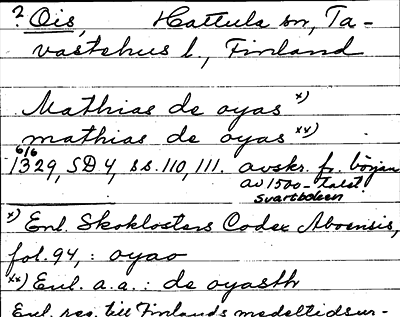 ? Ois, Hattula sn, Ta-
vastehus l., Finland
Mathias de oyas x)
mathias de oyas xx)
6/6
1329, SD 4, ss. 110, 111. avskr. fr. början
av 1500-talet
Svartboken
x) Enl. Skoklosters Codex Aboensis,
fol. 94, : oyao
xx) Enl. a.a.: de oyasth
Enl. reg. till Finlands medeltidsur-